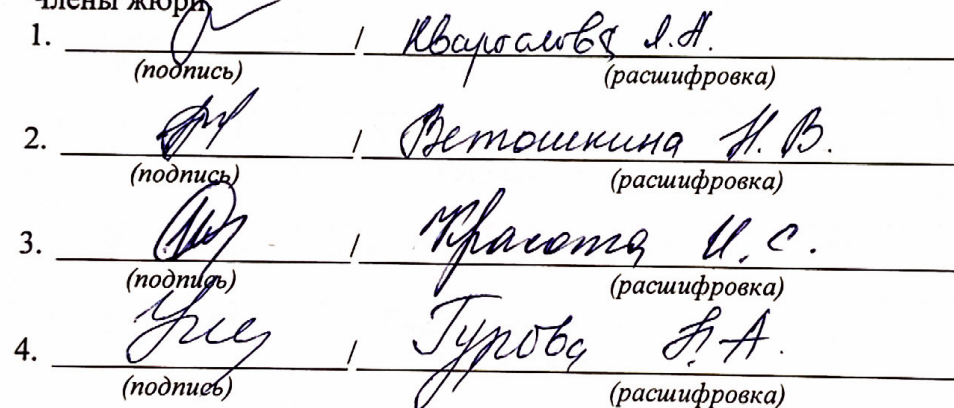 Члены жюри
1. / Я.А.
(подпись) (расшифровка)
2. / Ветошкина Н.В.
(подпись) (расшифровка)
3. / Красота И.С.
(подпись) (расшифровка)
4. / Гурова Н.А.
(подпись) (расшифровка)